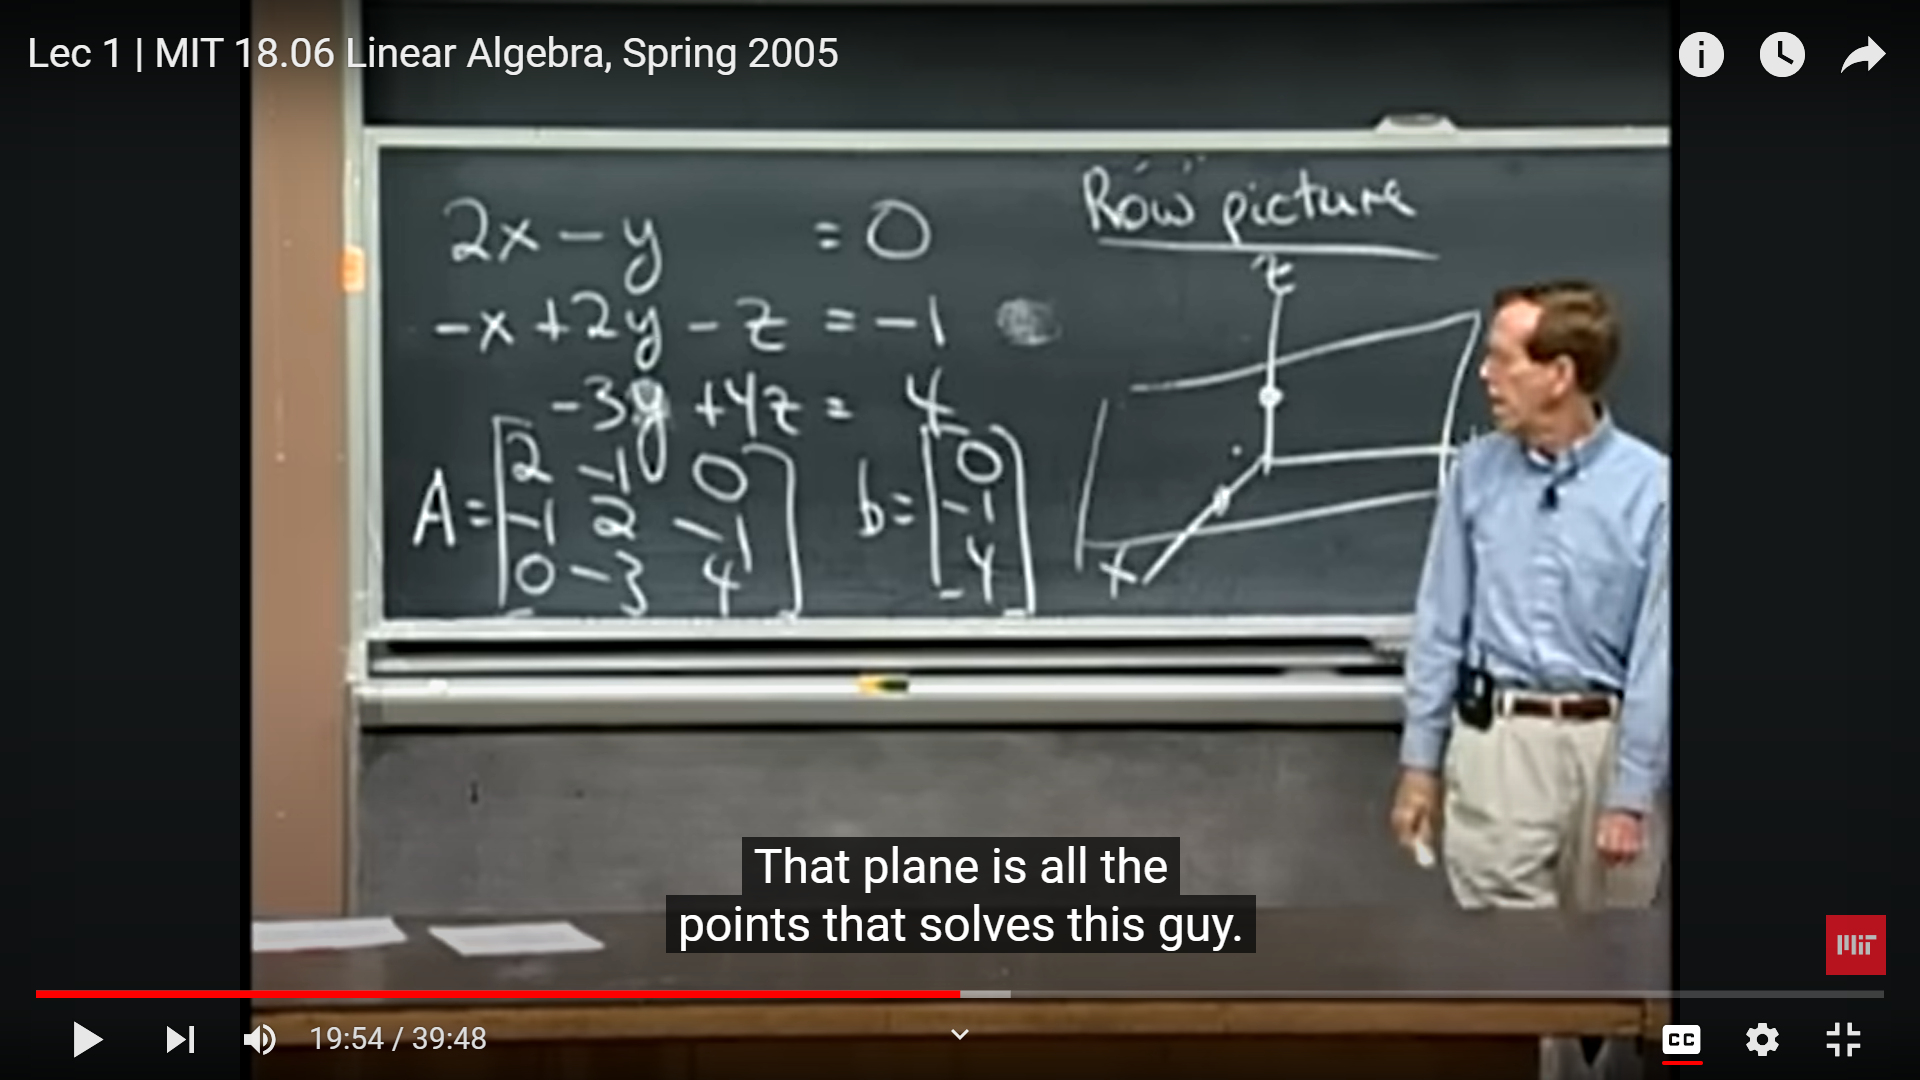 Lec 1 | MIT 18.06 Linear Algebra, Spring 2005
2x - y = 0
-x + 2y - z = -1
-3y + 4z = 4
A = [2 -1 0
-1 2 -1
0 -3 4]
b = [0
-1
4]
Row picture
z
x
That plane is all the
points that solves this guy.
MIT
19:54 / 39:48
CC